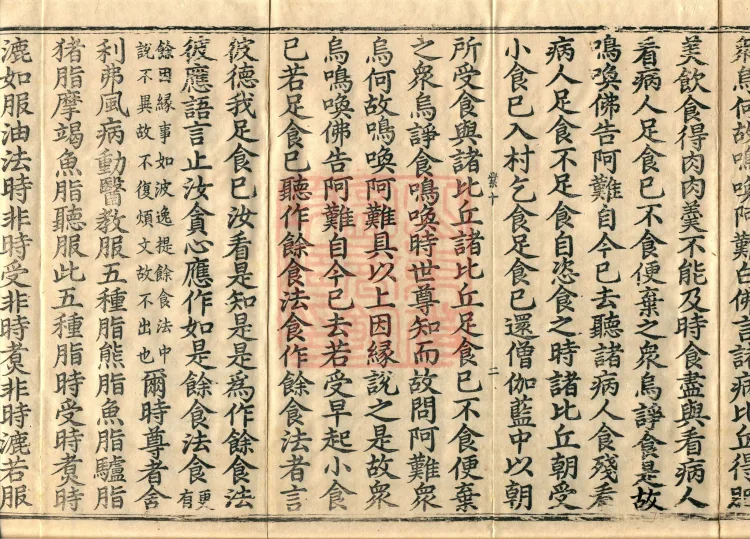 衆烏何故鳴喚阿難白佛言諸病比丘得
美飲食得肉肉羹不能及時食盡與看病人
看病人足食已不食便棄之衆烏諍食是故
鳴喚佛告阿難自今已去聽諸病人食殘看
病人足食不足食自恣食之時諸比丘朝受
小食已入村乞食足食已還僧伽藍中以朝
業十 二
所受食與諸比丘諸比丘足食已不食便棄
之衆烏諍食鳴喚時世尊知而故問阿難衆
烏何故鳴喚阿難具以上因緣說之是故衆
烏鳴喚佛告阿難自今已去若受早起小食
已若足食已聽作餘食法食作餘食法者言
彼德我足食已汝看是知是是爲作餘食法
彼應語言止汝貪心應作如是餘食法食更有
餘因緣事如波逸提餘食法中
說不異故不復煩文故不出也爾時尊者舍
利弗風病動醫教服五種脂熊脂魚脂驢脂
猪脂摩竭魚脂聽服此五種脂時受時煑時
漉如服油法時非時受非時煑非時漉若服